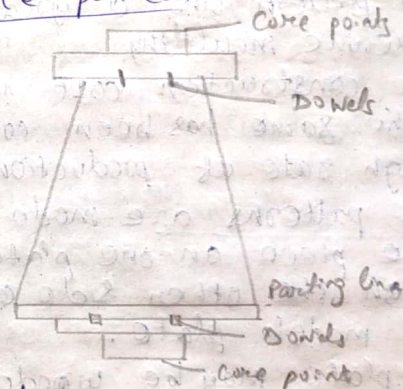 Core points
Dowels.
Parting line
Dowels
Core points